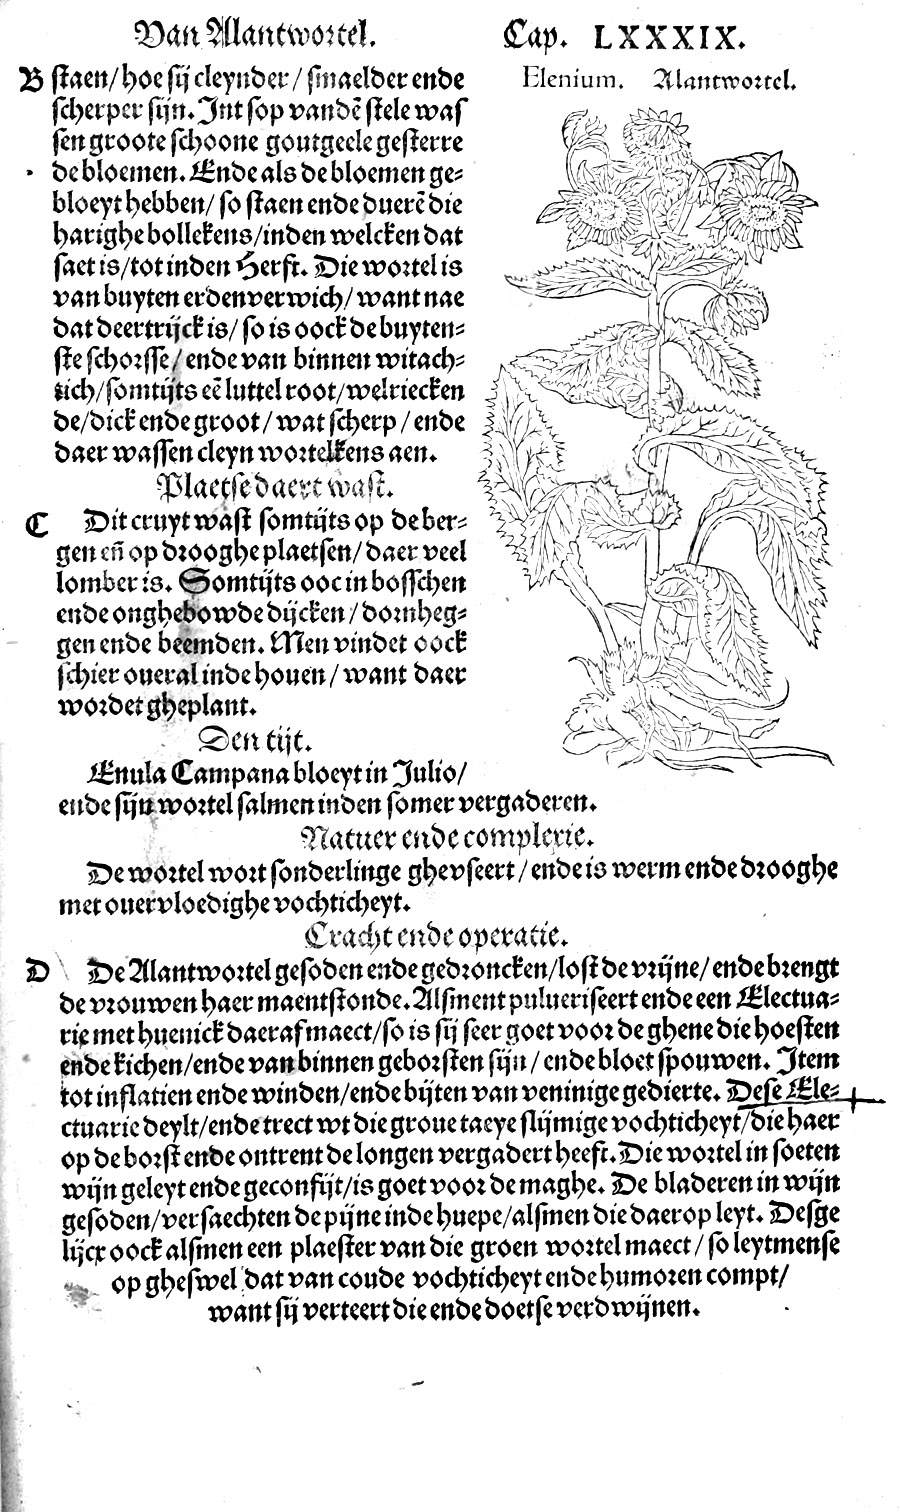 Van Alantwortel. Cap. LXXXIX.
Elenium. Alantwortel.
B staen/hoe sij cleynder/ smaelder ende
scherper sijn. Int sop vandẽ stele was
sen groote schoone goutgeele gesterre
de bloemen. Ende als de bloemen ge⸗
bloeyt hebben/ so staen ende duerẽ die
harighe bollekens/inden welcken dat
saet is/tot inden Herfst. Die wortel is
van buyten erdenverwich/ want nae
dat deertrijck is/ so is oock de buyten⸗
ste schorsse/ ende van binnen witach⸗
tich/somtijts eẽ luttel root/welriecken
de/dick ende groot/ wat scherp/ ende
daer wassen cleyn wortelkens aen.
Plaetse daert wast.
C Dit cruyt wast somtijts op de ber⸗
gen eñ op drooghe plaetsen/ daer veel
lomber is. Somtijts ooc in bosschen
ende onghebowde dijcken/ dornheg⸗
gen ende beemden. Men vindet oock
schier oueral inde houen/ want daer
wordet gheplant.
Den tijt.
Enula Campana bloeyt in Julio/
ende sijn wortel salmen inden somer vergaderen.
Natuer ende complexie.
De wortel wort sonderlinge ghevseert/ ende is werm ende drooghe
met ouervloedighe vochticheyt.
Cracht ende operatie.
D De Alantwortel gesoden ende gedroncken/lost de vrijne/ ende brengt
de vrouwen haer maentstonde. Alsment pulueriseert ende een Electua⸗
rie met huenick daeraf maect/so is sij seer goet voor de ghene die hoesten
ende kichen/ende van binnen geborsten sijn/ ende bloet spouwen. Item
tot inflatien ende winden/ende bijten van veninige gedierte. Dese Ele⸗
ctuarie deylt/ende trect wt die groue taeye slijmige vochticheyt/die haer
op de borst ende ontrent de longen vergadert heeft. Die wortel in soeten
wijn geleyt ende geconfijt/is goet voor de maghe. De bladeren in wijn
gesoden/versaechten de pijne inde huepe/alsmen die daer op leyt. Desge
lijcx oock alsmen een plaester van die groen wortel maect/ so leytmense
op gheswel dat van coude vochticheyt ende humoren compt/
want sij verteert die ende doetse verdwijnen.